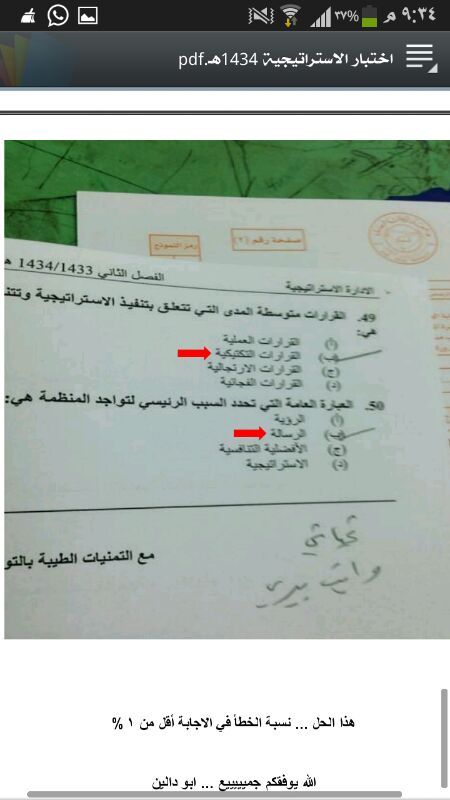 ٩:٣٤ م ٣٧%
اختبار الاستراتيجية 1434هـ.pdf
صفحة رقم (٦)
رمز النموذج
الادارة الاستراتيجية الفصل الثاني 1434/1433 هـ
49. القرارات متوسطة المدى التي تتعلق بتنفيذ الاستراتيجية
هي:
(أ) القرارات العملية
(ب) القرارات التكتيكية
(ج) القرارات الارتجالية
(د) القرارات الفجائية
50. العبارة العامة التي تحدد السبب الرئيسي لتواجد المنظمة هي:
(أ) الرؤية
(ب) الرسالة
(ج) الأفضلية التنافسية
(د) الاستراتيجية
مع التمنيات الطيبة بالتو
تحياتي
هذا الحل ... نسبة الخطأ في الاجابة أقل من ١ %
الله يوفقكم جمييييييع ... ابو دالين